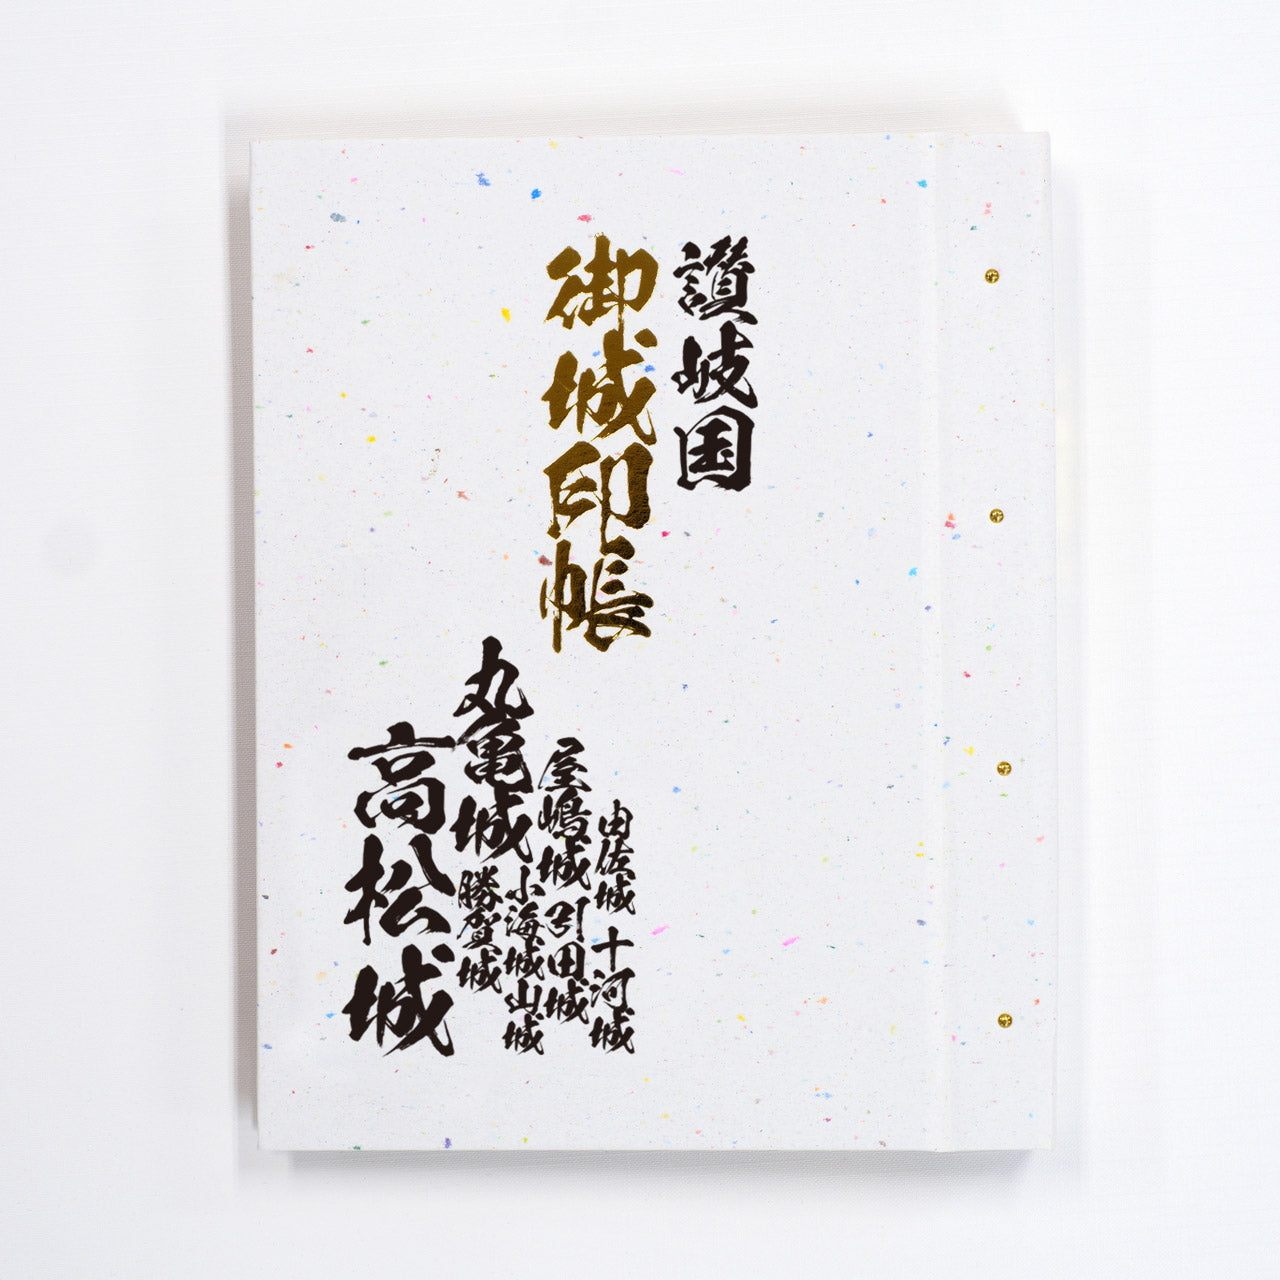 讃岐国
御城印帳
由佐城
十河城
屋嶋城
引田城
小海城山城
丸亀城
勝賀城
高松城